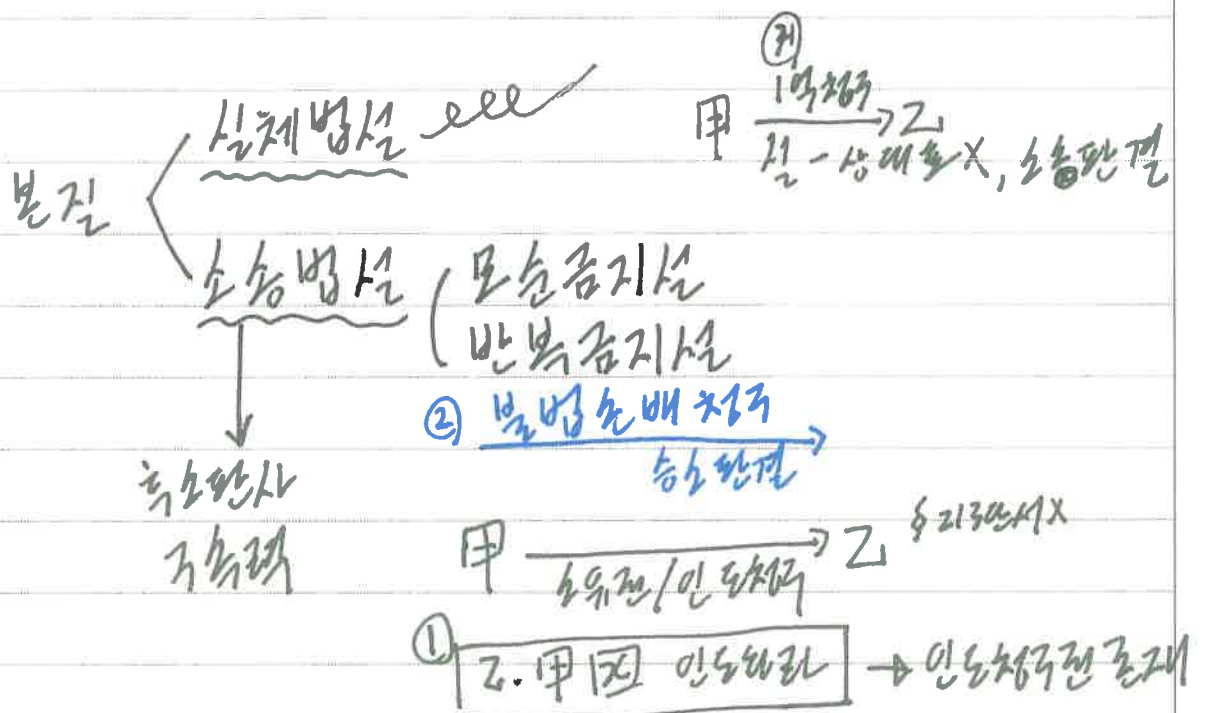 본질
실체법설
소송법설
모순금지설
반복금지설
후소판사
구속력
1억청구
甲 → 乙
실-상대효X, 소송판결
② 불법손배청구
승소판결
甲 → 乙 §213단서X
소유권/인도청구
① 乙. 甲 인도하라 → 인도청구권 존재